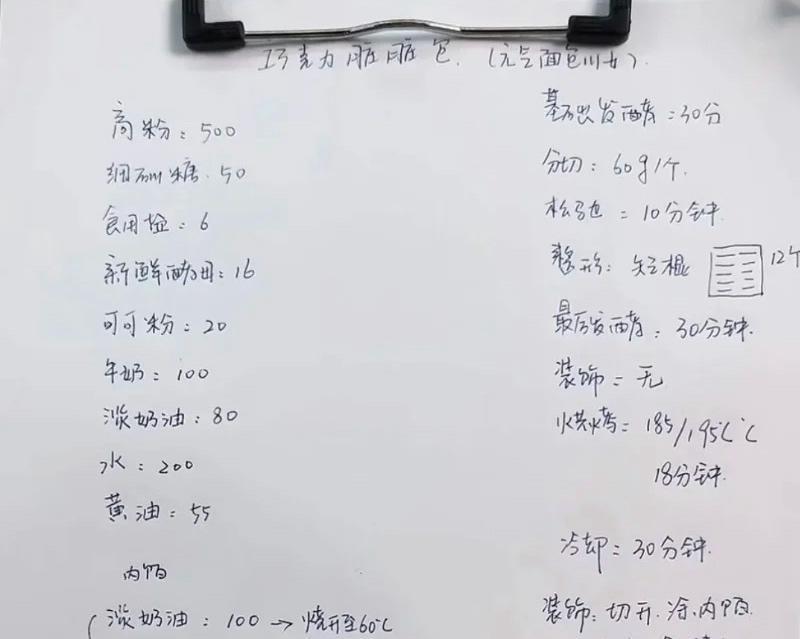 巧克力脏脏包.(元气面包川女).
高粉:500
细砂糖.50
食用盐:6
新鲜酵母:16
可可粉:20
牛奶:100
淡奶油:80
水:200
黄油:55
内馅
淡奶油:100→烧开至60℃
基础发酵:30分
分切:60g/个.
松弛:10分钟.
整形:短棍 12个
最后发酵:30分钟.
装饰:无
烘烤:185/195℃℃
18分钟.
冷却:30分钟.
装饰:切开.涂.内馅